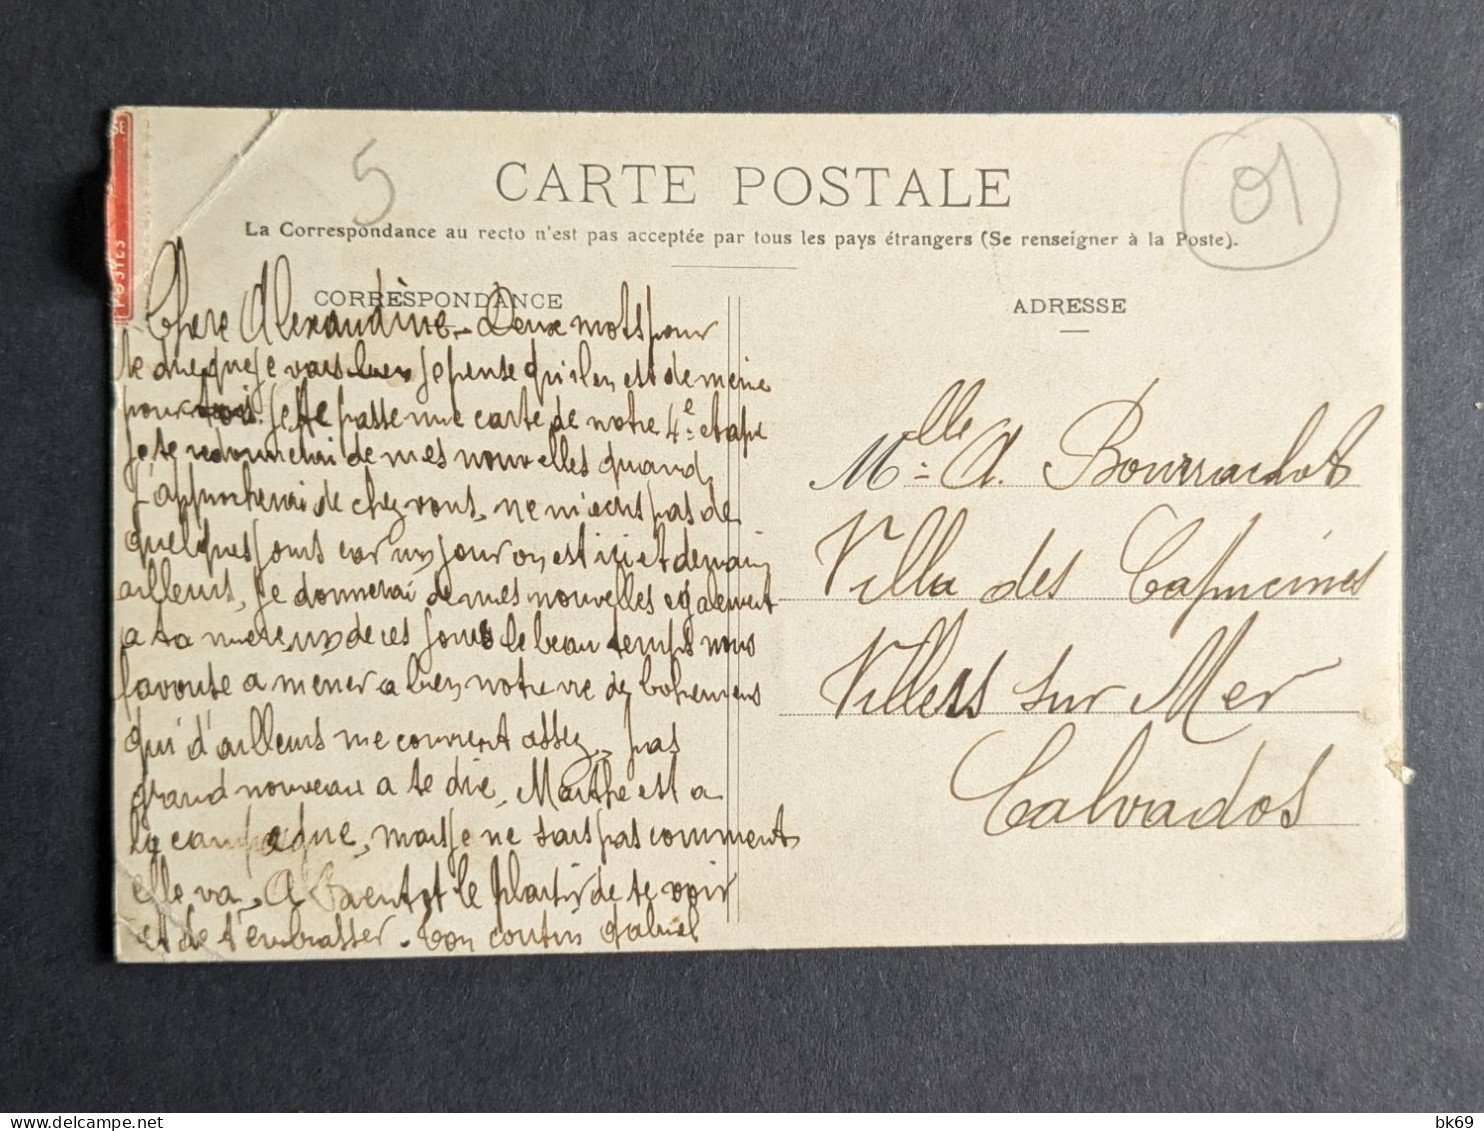 SE
POSTES
5
01
CARTE POSTALE
La Correspondance au recto n'est pas acceptée par tous les pays étrangers (Se renseigner à la Poste).
CORRESPONDANCE
ADRESSE
Chere Alexandrine - Deux mots pour
te dire que je vais bien je pense qu'il en est de même
pour toi. Je te passe une carte de notre 4e etape
je te redonnerai de mes nouvelles quand
j'approcherai de chez vous, ne m'ecris pas de
quelques jours car un jour on est ici et demain
ailleurs, je donnerai de mes nouvelles egalement
a ta mere, un de ces jours le beau temps nous
favorise a mener a bien notre vie de bohemiens
qui d'ailleurs me convient assez, pas
grand nouveau a te dire, Marthe est a
la campagne, mais je ne sais pas comment
elle va, A Bientot le plaisir de te voir
et de t'embrasser - Ton cousin Gabriel
Melle A. Bourrachot
Villa des Capucines
Villers sur Mer
Calvados
bk69